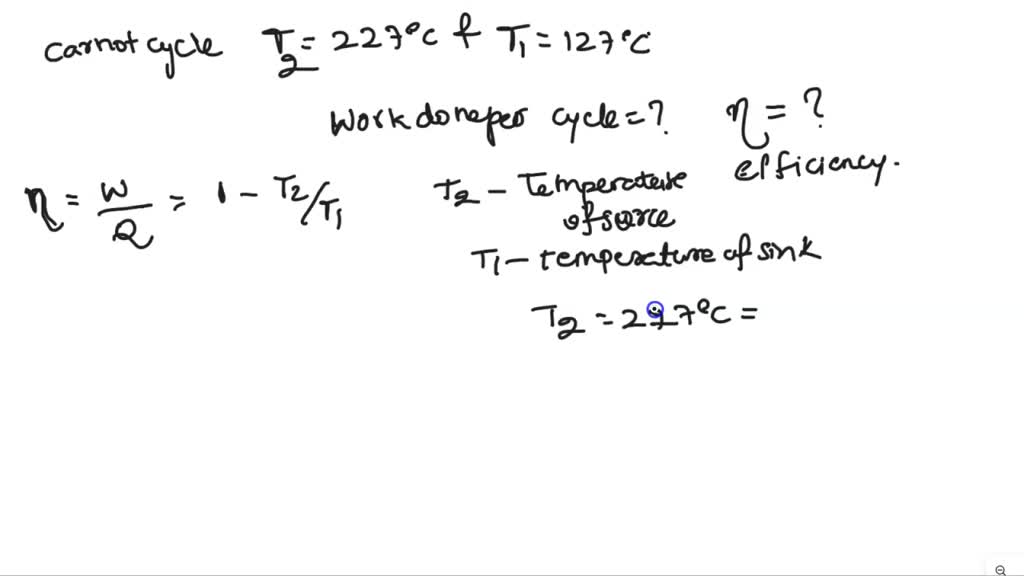 carnot cycle T2 = 227°C & T1 = 127°C
Work done per cycle = ? η = ?
efficiency.
η = W/Q = 1 - T2/T1
T2 - Temperature
of source
T1 - temperature of sink
T2 = 227°C =